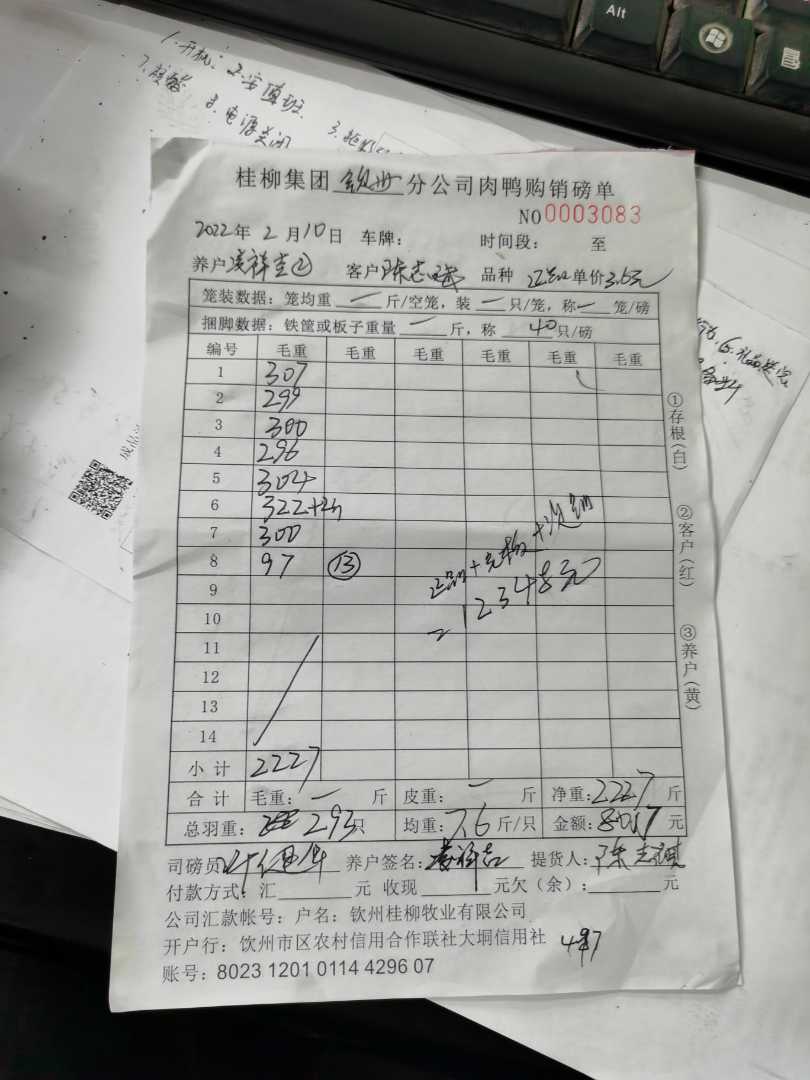 1.开机: 2.安
电源关闭
Alt
桂柳集团 钦州 分公司肉鸭购销磅单
NO 0003083
2022年 2 月 10 日 车牌: 时间段: 至
养户 凌祥吉② 客户 陈志 品种 正品 单价 3.6元
笼装数据: 笼均重 一 斤/空笼, 装 一 只/笼, 称 一 笼/磅
捆脚数据: 铁筐或板子重量 一 斤, 称 40 只/磅
编号 毛重 毛重 毛重 毛重 毛重 毛重
1 307
2 299
3 300
4 296
5 304
6 322
7 300
8 97 ⑬
9
10
11
12
13
14
正品+ +次
=12348元
小计 2227
合计 毛重: 一 斤 皮重: 一 斤 净重: 2227 斤
总羽重: 293 只 均重: 7.6 斤/只 金额: 8017 元
司磅员 养户签名: 凌祥吉 提货人: 陈志
付款方式: 汇 元 收现 元欠(余): 元
公司汇款帐号: 户名: 钦州桂柳牧业有限公司
开户行: 饮州市区农村信用合作联社大垌信用社
账号: 8023 1201 0114 4296 07
①存根(白)
②客户(红)
③养户(黄)